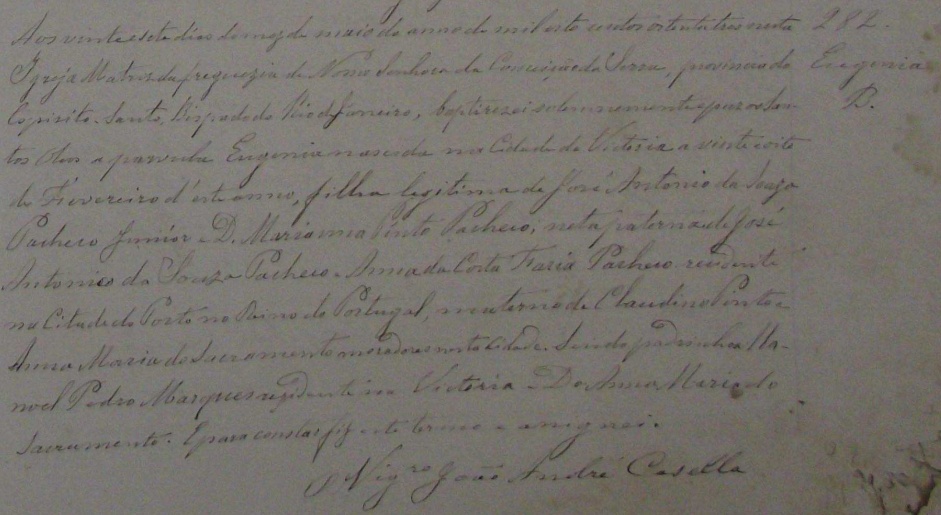 Aos vinte e sete dias do mez de maio do anno de mil oito centos oitenta tres nesta 282.
Igreja Matriz da freguezia de Nossa Senhora da Conceição da Serra, provincia do Eugenia
Espirito-Santo, Bispado do Rio de Janeiro, baptizei solemnemente e puz os San- B.
tos Oleos a parvula Eugenia nascida na Cidade da Victoria a vinte e oito
de Fevereiro d'este anno, filha legitima de José Antonio da Souza
Pacheco Junior e D. Marianna Pinto Pacheco; neta paterna de José
Antonio da Souza Pacheco e Anna da Costa Faria Pacheco residente
na Citade do Porto no Reino de Portugal, materna de Claudino Pinto e
Anna Maria do Sacramento moradores nesta cidade. Sendo padrinhos Ma-
noel Pedro Marques residente na Victoria e Da Anna Maria do
Sacramento. E para constar fiz este termo e assignei.
O Vigro João André Casella